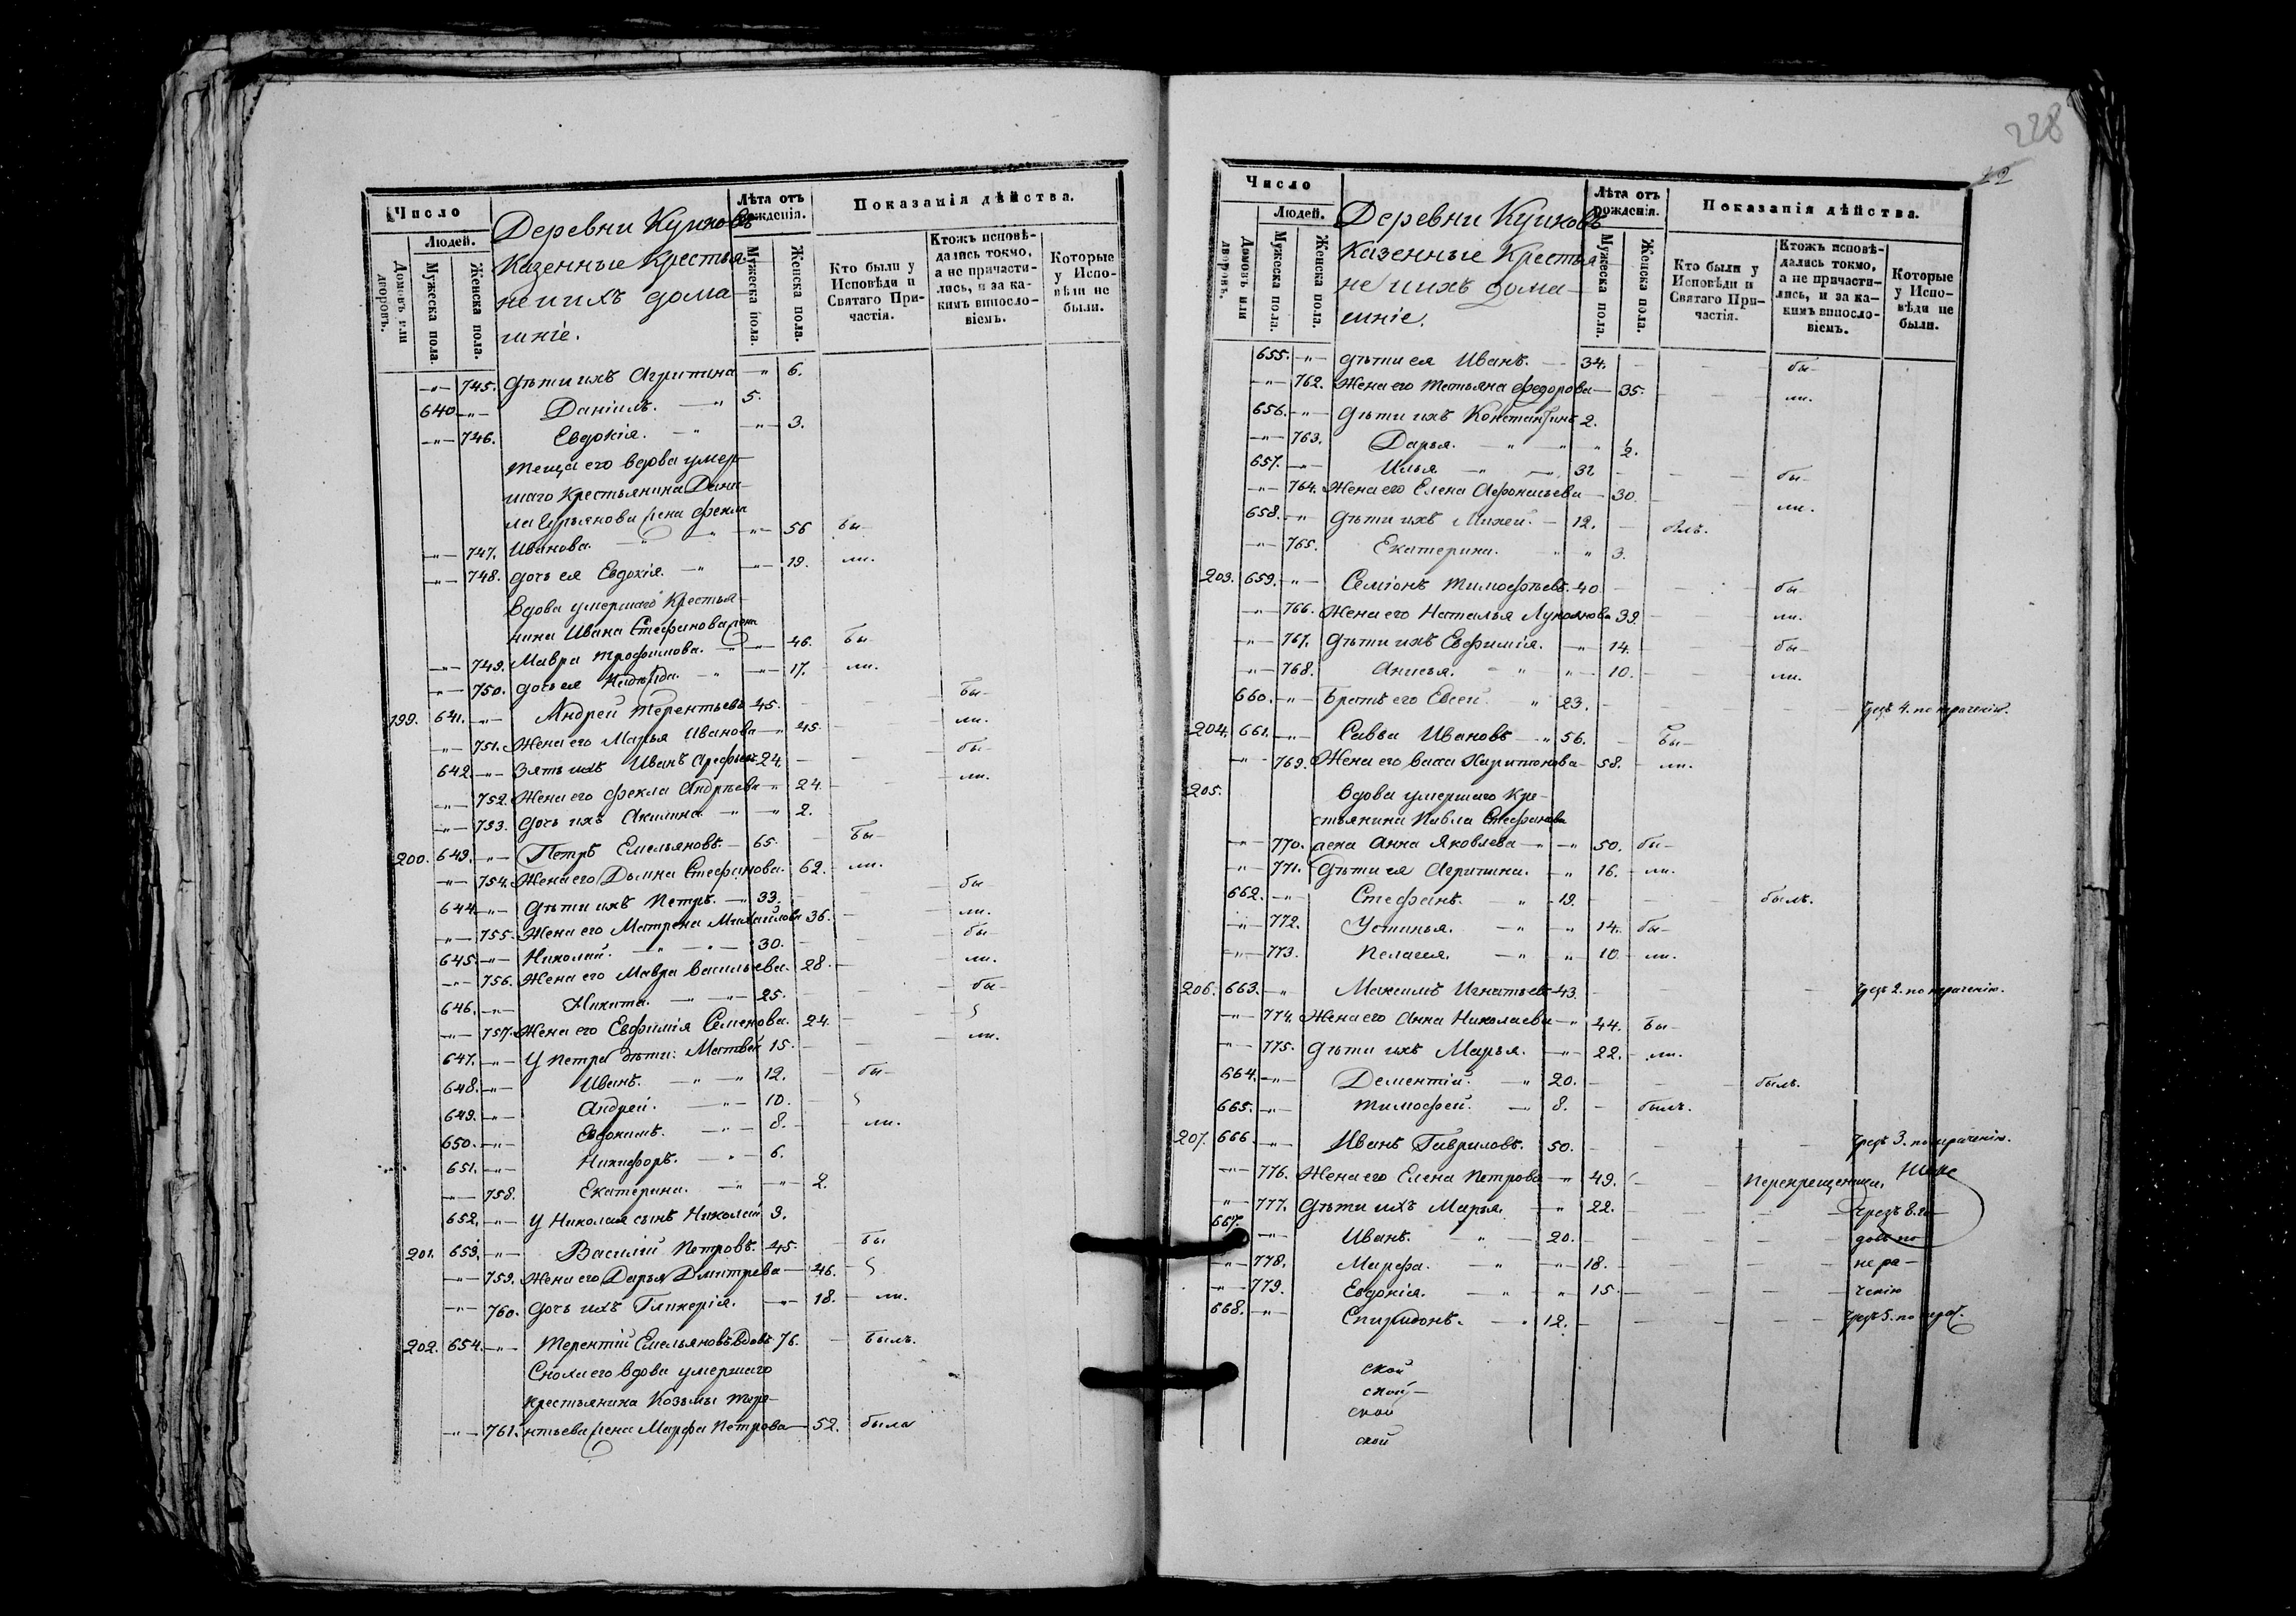 Число
Людей.
Домовъ или дворовъ.
Мужеска пола.
Женска пола.
Деревни
Казенные Крестья-
не и ихъ дома-
шніе.
Лѣта отъ рожденія.
Мужеска пола.
Женска пола.
Показанія дѣйства.
Кто были у Исповѣди и Святаго Причастія.
Ктожъ исповѣдались токмо, а не причастились, и за какимъ винословіемъ.
Которые у Исповѣди не были.
-"- 745. дѣти ихъ Агрипина -"- 6.
640 -"- Даніилъ. -"- 5.
-"- 746. Евдокія. -"- -"- 3.
теща его вдова умер-
шаго Крестьянина Дани-
ла жена Фекла
-"- 747. Иванова. -"- -"- 56 бы-
-"- 748. дочь ея Евдокія. -"- -"- 19. ли.
вдова умершаго Крестья-
нина Ивана Стефанова жена
-"- 749. Мавра Трофимова. -"- 46. бы-
-"- 750. дочь ея Надежда. -"- -"- 17. ли.
199. 641. -"- Андрей Терентьевъ 45. бы-
-"- 751. Жена его Марья Иванова -"- 45. ли.
642. -"- Зять ихъ Иванъ 24. бы-
-"- 752. Жена его Фекла Андрѣева -"- 24. ли.
-"- 753. дочь ихъ Акилина -"- -"- 2.
200. 643. -"- Петръ Емельяновъ. 65. бы-
-"- 754. Жена его Домна Стефанова. 62. ли.
644. -"- дѣти ихъ Петръ. -"- 33. бы
-"- 755. Жена его Матрена Михайлова 36. ли.
645. -"- Николай. -"- -"- 30. бы-
-"- 756. Жена его Мавра Васильева. 28. ли.
646. -"- Никита. -"- -"- 25. бы-
-"- 757. Жена его Евфимія Семенова. 24.
647. -"- У Петра дѣти: Матвей 15. ли.
648. -"- Иванъ. -"- -"- 12. бы-
649. -"- Андрей. -"- 10.
650. -"- Евдокимъ. -"- 8. ли.
651. -"- Никифоръ. -"- 6.
-"- 758. Екатерина. -"- -"- 2.
652. -"- У Николая сынъ Николай 3.
201. 653. -"- Василій Петровъ. 45. бы
-"- 759. Жена его Дарья Дмитрева 46.
-"- 760. дочь ихъ Гликерія. -"- 18. ли.
202. 654. -"- Терентій Емельяновъ вдовъ 76. былъ.
Сноха его вдова умершаго
крестьянина Козьмы Тере-
-"- 761. нтьева жена Марфа Петрова 52. была
228
Число
Людей.
Домовъ или дворовъ.
Мужеска пола.
Женска пола.
Деревни
Казенные Крестья-
не и ихъ дома-
шніе.
Лѣта отъ рожденія.
Мужеска пола.
Женска пола.
Показанія дѣйства.
Кто были у Исповѣди и Святаго Причастія.
Ктожъ исповѣдались токмо, а не причастились, и за какимъ винословіемъ.
Которые у Исповѣди не были.
655. -"- дѣти ея Иванъ. 34. бы-
-"- 762. Жена его Татьяна Федорова 35. ли.
656. -"- дѣти ихъ Константинъ 2.
-"- 763. Дарья. -"- -"- 1/2.
657. -"- Илья -"- -"- 32 бы-
-"- 764. Жена его Елена Афонасьева 30. ли.
658. -"- дѣти ихъ Михей. 12. былъ.
-"- 765. Екатерина. -"- -"- 3.
203. 659. -"- Семіонъ Тимофѣевъ. 40 бы-
-"- 766. Жена его Наталья Лукоянова 39. ли.
-"- 767. дѣти ихъ Евфимія. -"- 14. бы-
-"- 768. Анисья. -"- -"- 10. ли.
660. -"- Братъ его Евсей. -"- 23. 4. по нераченію.
204. 661. -"- Савва Ивановъ -"- 56. бы-
-"- 769. Жена его Васса Харитонова 58. ли.
205. вдова умершаго Кре-
стьянина Павла Стефанова
-"- 770. жена Анна Яковлева -"- -"- 50. бы-
-"- 771. дѣти ея Агрипина. -"- 16. ли.
662. -"- Стефанъ. -"- 19. былъ.
-"- 772. Устинья. -"- -"- 14. бы-
-"- 773. Пелагея. -"- -"- 10. ли.
206. 663. -"- Максимъ Игнатьевъ 43. 2. по нераченію.
-"- 774. Жена его Анна Николаева -"- 44. бы-
-"- 775. дѣти ихъ Марья. -"- 22. ли.
664. -"- Дементій. -"- 20. былъ.
665. -"- Тимофей. -"- 8. былъ.
207. 666 -"- Иванъ Гавриловъ. 50. 3. по нераченію.
-"- 776. Жена его Елена Петрова -"- 49. Перекрещенка.
-"- 777. дѣти ихъ Марья. -"- 22. Чрезъ 8. го-
667. -"- Иванъ. -"- 20. довъ по
-"- 778. Марфа. -"- -"- 18. нера-
-"- 779. Евдокія. -"- -"- 15. ченію
668. -"- Спиридонъ. -"- 12. 5. по нерач.
ской
ской
ской
ской